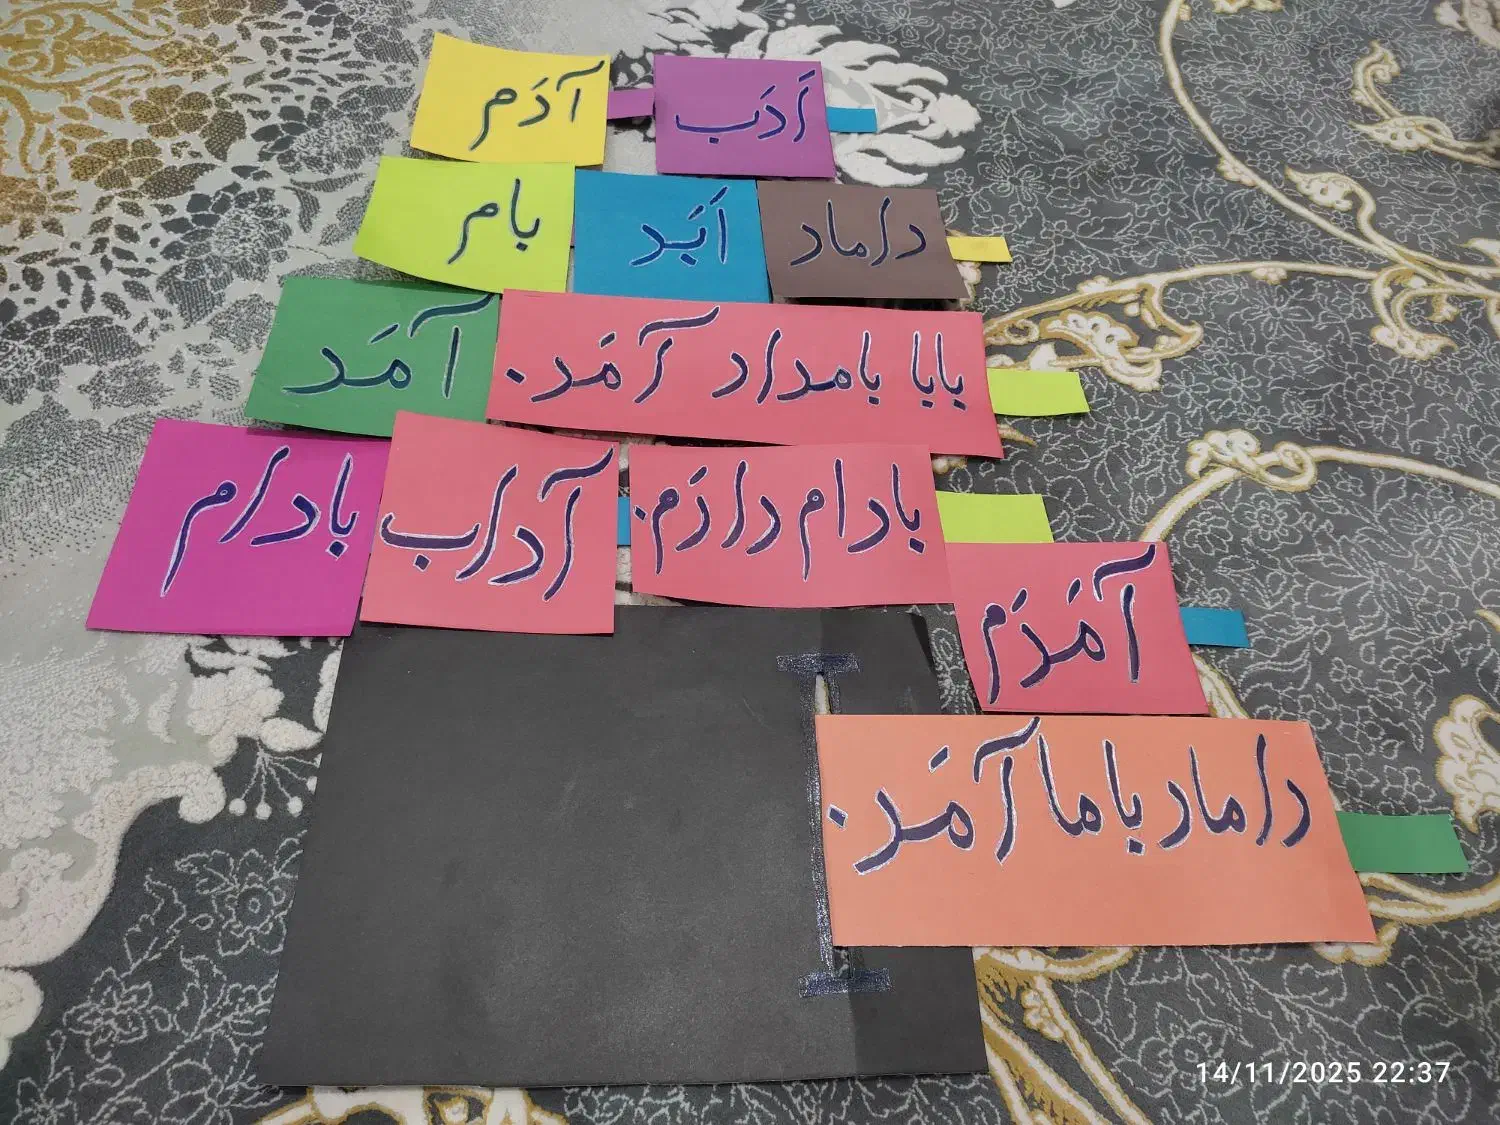 اَدَب
آدَم
داماد
اَبَد
بام
بابا بامداد آمَد.
آمَد
بادام دارَم.
آداب
بادام
آمَدَم
داماد با ما آمَد.
14/11/2025 22:37